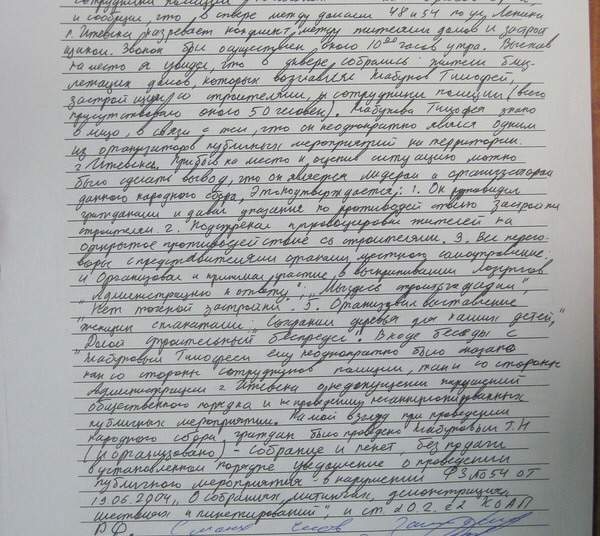 сотрудники полиции
и сообщил, что, в сквере между домами 48 и 54 по ул. Ленина
г. Ижевска назревает конфликт, между жителями домов и застрой
щиком. Звонок был осуществлен около 10⁰⁰ часов утра. Выехав
на место я увидел, что в сквере собрались жители близ-
лежащих домов, которых возглавлял Мабутов Тимофей,
застройщик со строителями, и сотрудники полиции (всего
присутствовало около 50 человек). Мабутова Тимофея знаю
в лицо, в связи с тем, что он неоднократно являлся одним
из организаторов публичных мероприятий на территории
г. Ижевска. Прибыв на место и оценив ситуацию можно
было сделать вывод, что он является лидером и организатором
данного народного сбора, Это подтверждается: 1. Он руководил
гражданами и давал указания по противодействию застройки
строителям. 2. Подстрекал, провоцировал жителей на
открытое противодействие со строителями. 3. Вел перего-
воры с представителями органами местного самоуправления.
и Организовал и принимал участие, в выкрикивании лозунгов
"Администрацию к ответу"; "Мы здесь
"Нет точечной застройки". 5. Организовал выставление,
женщин с плакатами: "Сохраним деревья для наших детей,"
"Долой строительный беспредел"! В ходе беседы с
Мабутовым Тимофеем ему неоднократно было указано
как со стороны сотрудников полиции, так и со стороны
Администрации г. Ижевска о недопущении нарушений
общественного порядка и не проведении несанкционированных
публичных мероприятий. На мой взгляд при проведении
народного сбора, граждан было проведено Мабутовым Т.Н
(и организовано) - собрание и пикет, без подачи
в установленном порядке уведомление о проведении
публичного мероприятия в нарушении ФЗ №54 от
19.06.2004, "О собраниях, митингах, демонстрациях,
шествиях и пикетирований", и ст. 20.2. ч2 КОАП
РФ.